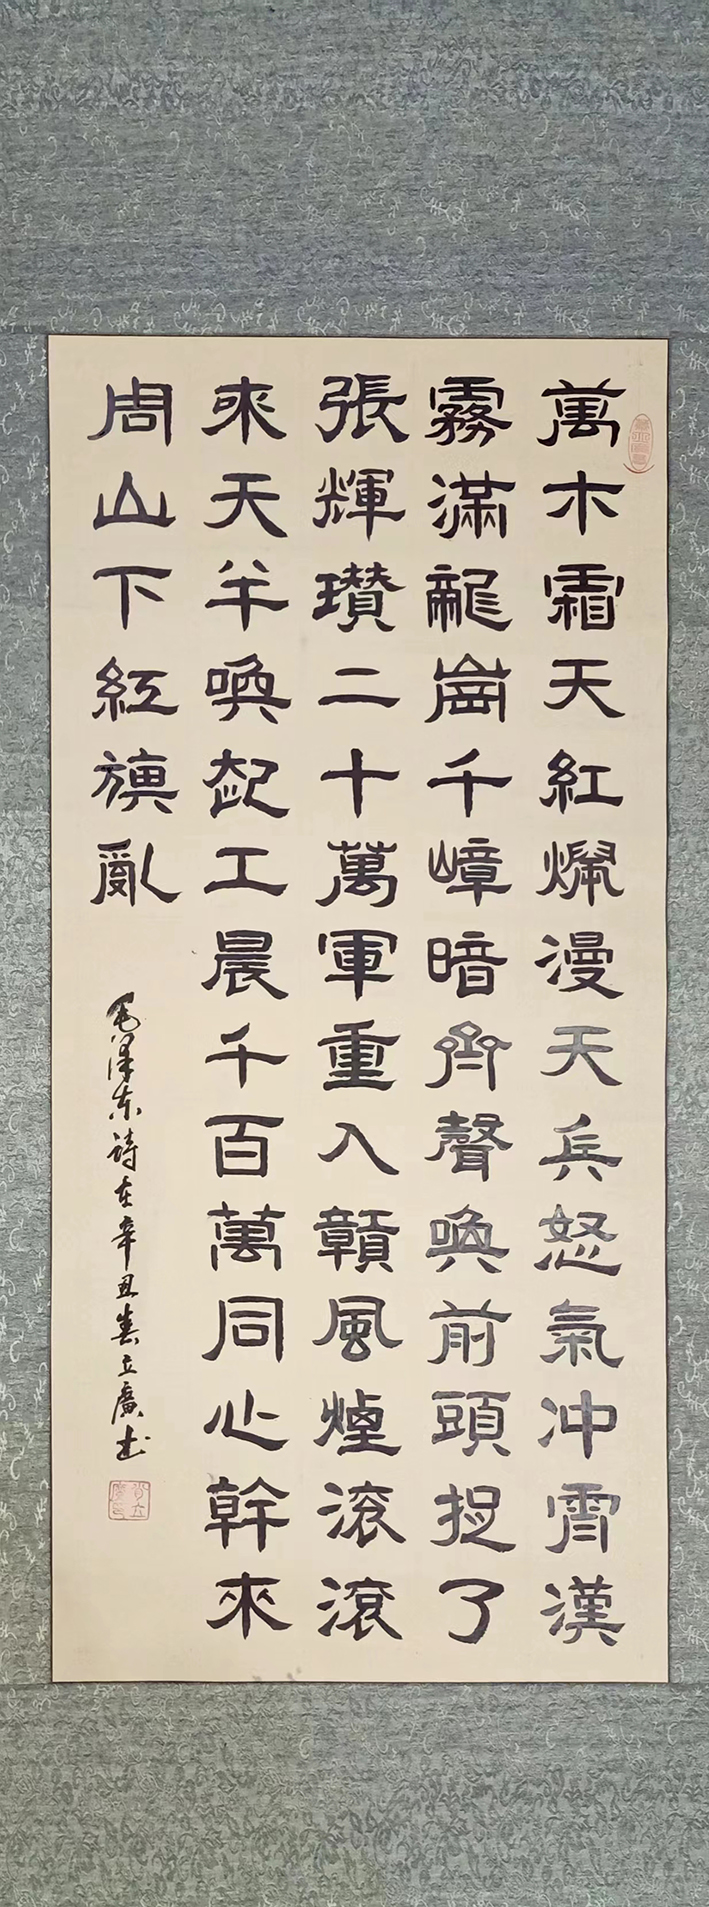 萬木霜天紅爛漫天兵怒氣冲霄漢
霧滿龍崗千嶂暗齊聲喚前頭捉了
張輝瓚二十萬軍重入贛風煙滾滾
來天半喚起工晨千百萬同心幹來
周山下紅旗亂
毛泽东詩在辛丑春立廣书